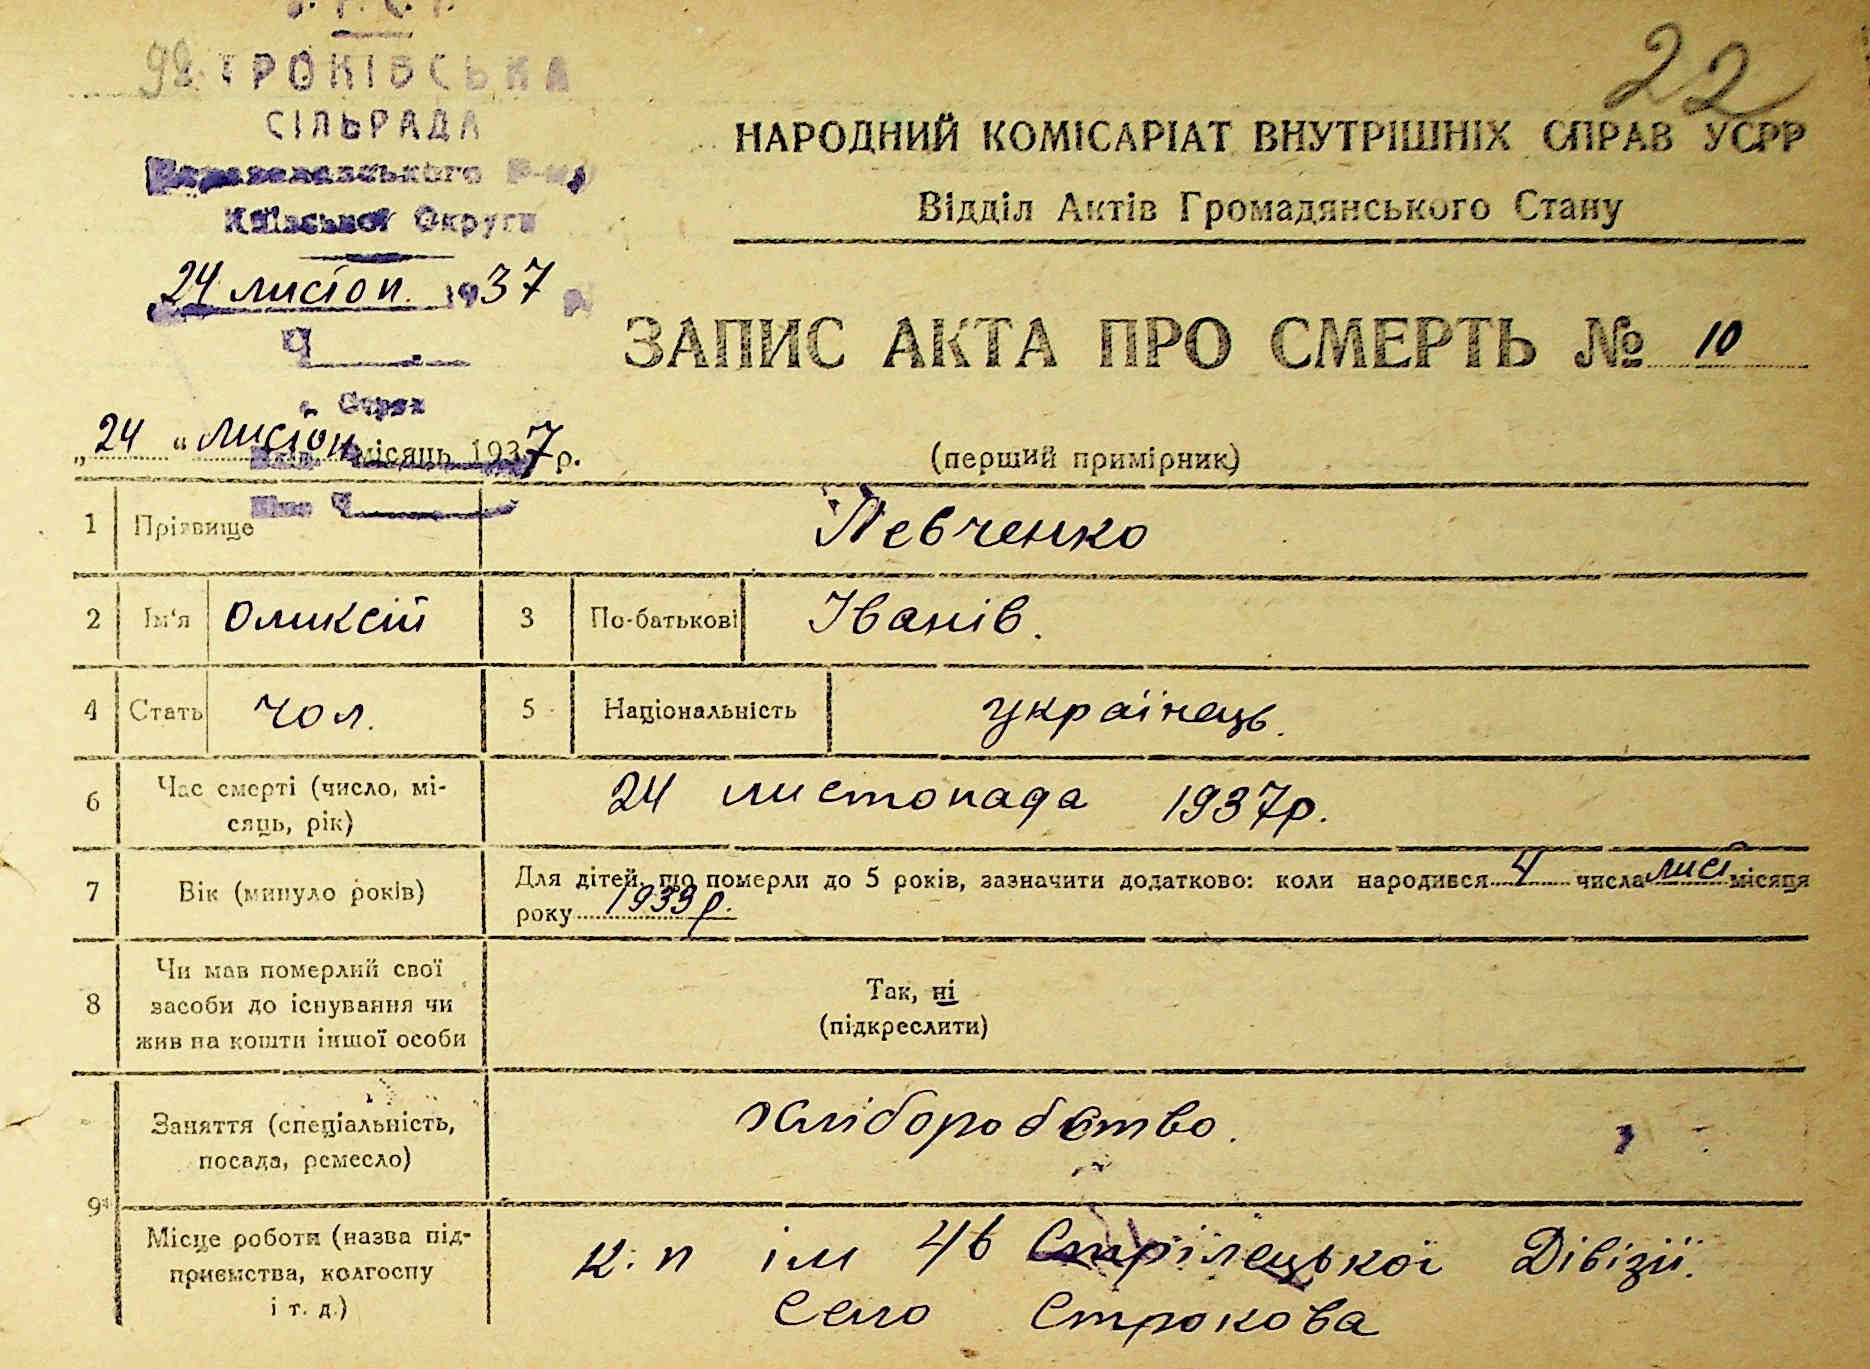 У.С.Р.Р.
92.
22
СТРОКІВСЬКА
СІЛЬРАДА
Київської Округи
24 листоп. 1937 р
Ч
НАРОДНИЙ КОМІСАРІАТ ВНУТРІШНІХ СПРАВ УСРР
Відділ Актів Громадянського Стану
ЗАПИС АКТА ПРО СМЕРТЬ № 10
„24 “ листоп місяць 1937 р.
(перший примірник)
1 Прізвище Левченко
2 Ім'я Оликсій 3 По-батькові Іванів.
4 Стать чол. 5 Національність українець.
6 Час смерті (число, мі-
сяць, рік) 24 листопада 1937р.
7 Вік (минуло років) Для дітей, що померли до 5 років, зазначити додатково: коли народився 4 числа лист місяця
року 1933 р.
8 Чи мав померлий свої
засоби до існування чи
жив на кошти іншої особи
Так, ні
(підкреслити)
9 Заняття (спеціальність,
посада, ремесло) хліборобство.
Місце роботи (назва під-
приємства, колгоспу
і т. д.)
к:п ім 46 Стрілецької Дівізії.
село Строкова